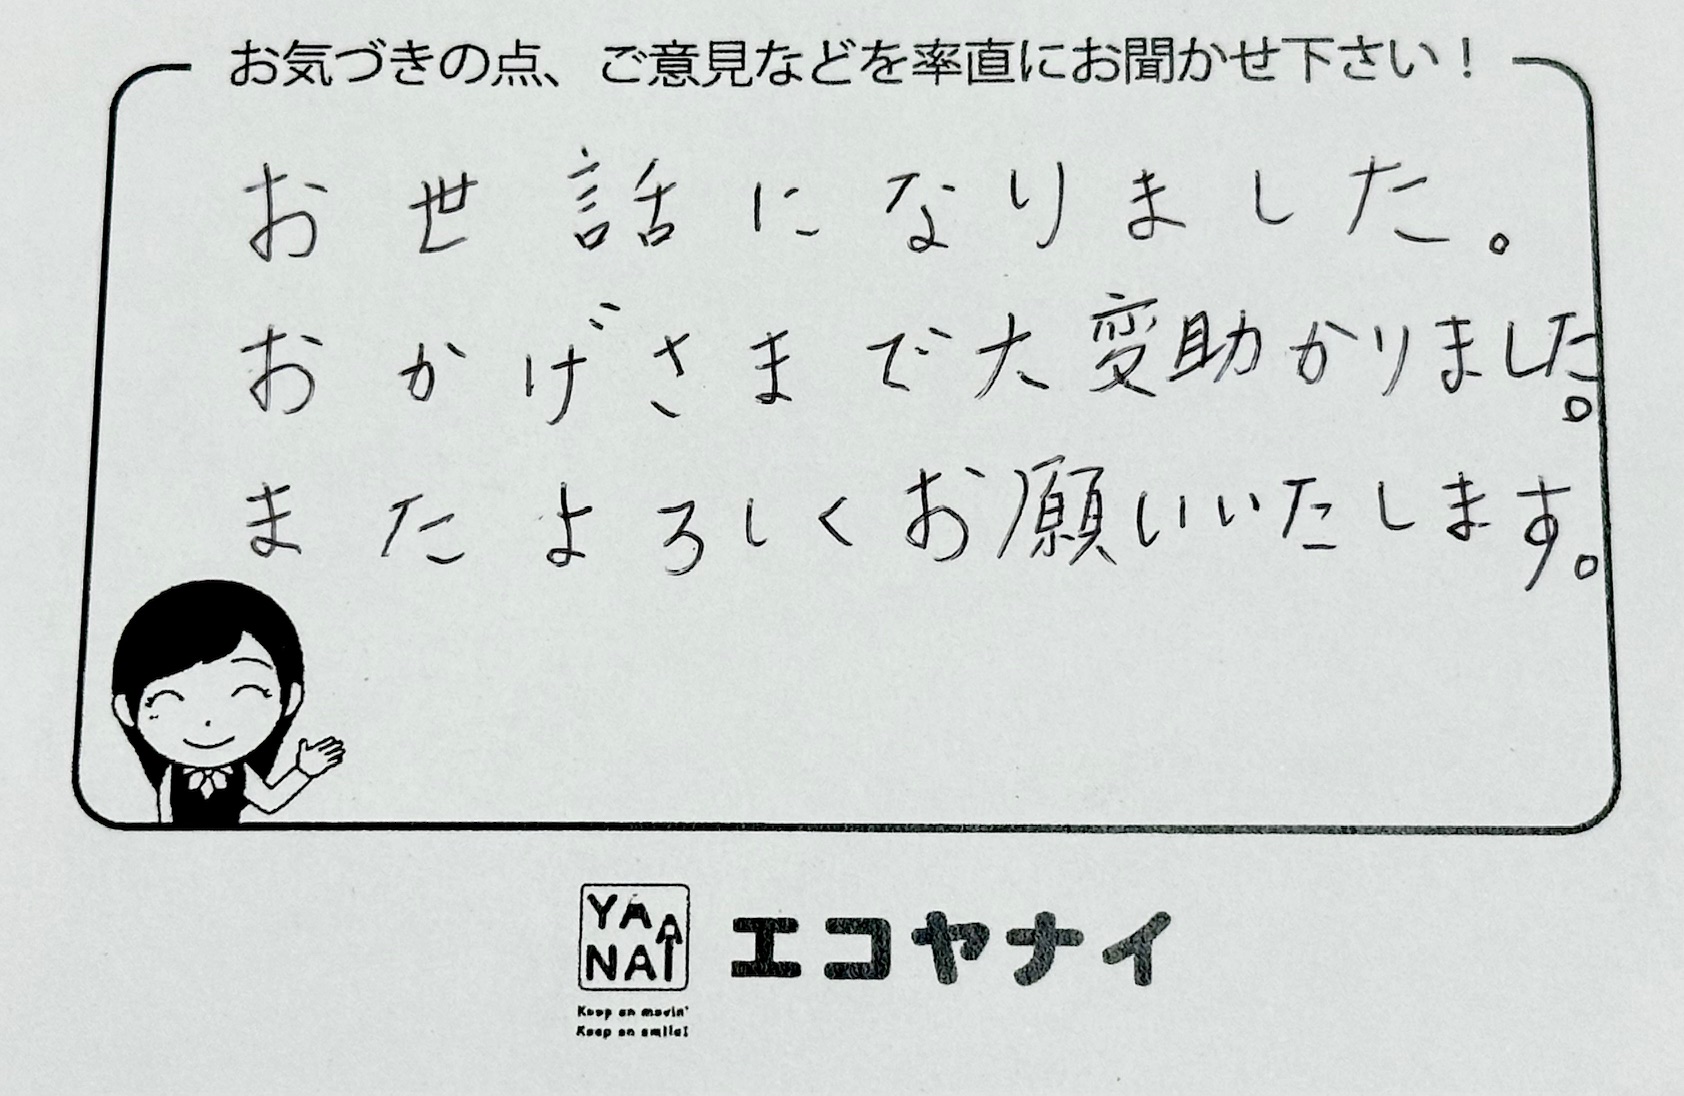 お気づきの点、ご意見などを率直にお聞かせ下さい！
お世話になりました。
おかげさまで大変助かりました。
またよろしくお願いいたします。
YAANAI
エコヤナイ
Keep on movin'
Keep on smile!